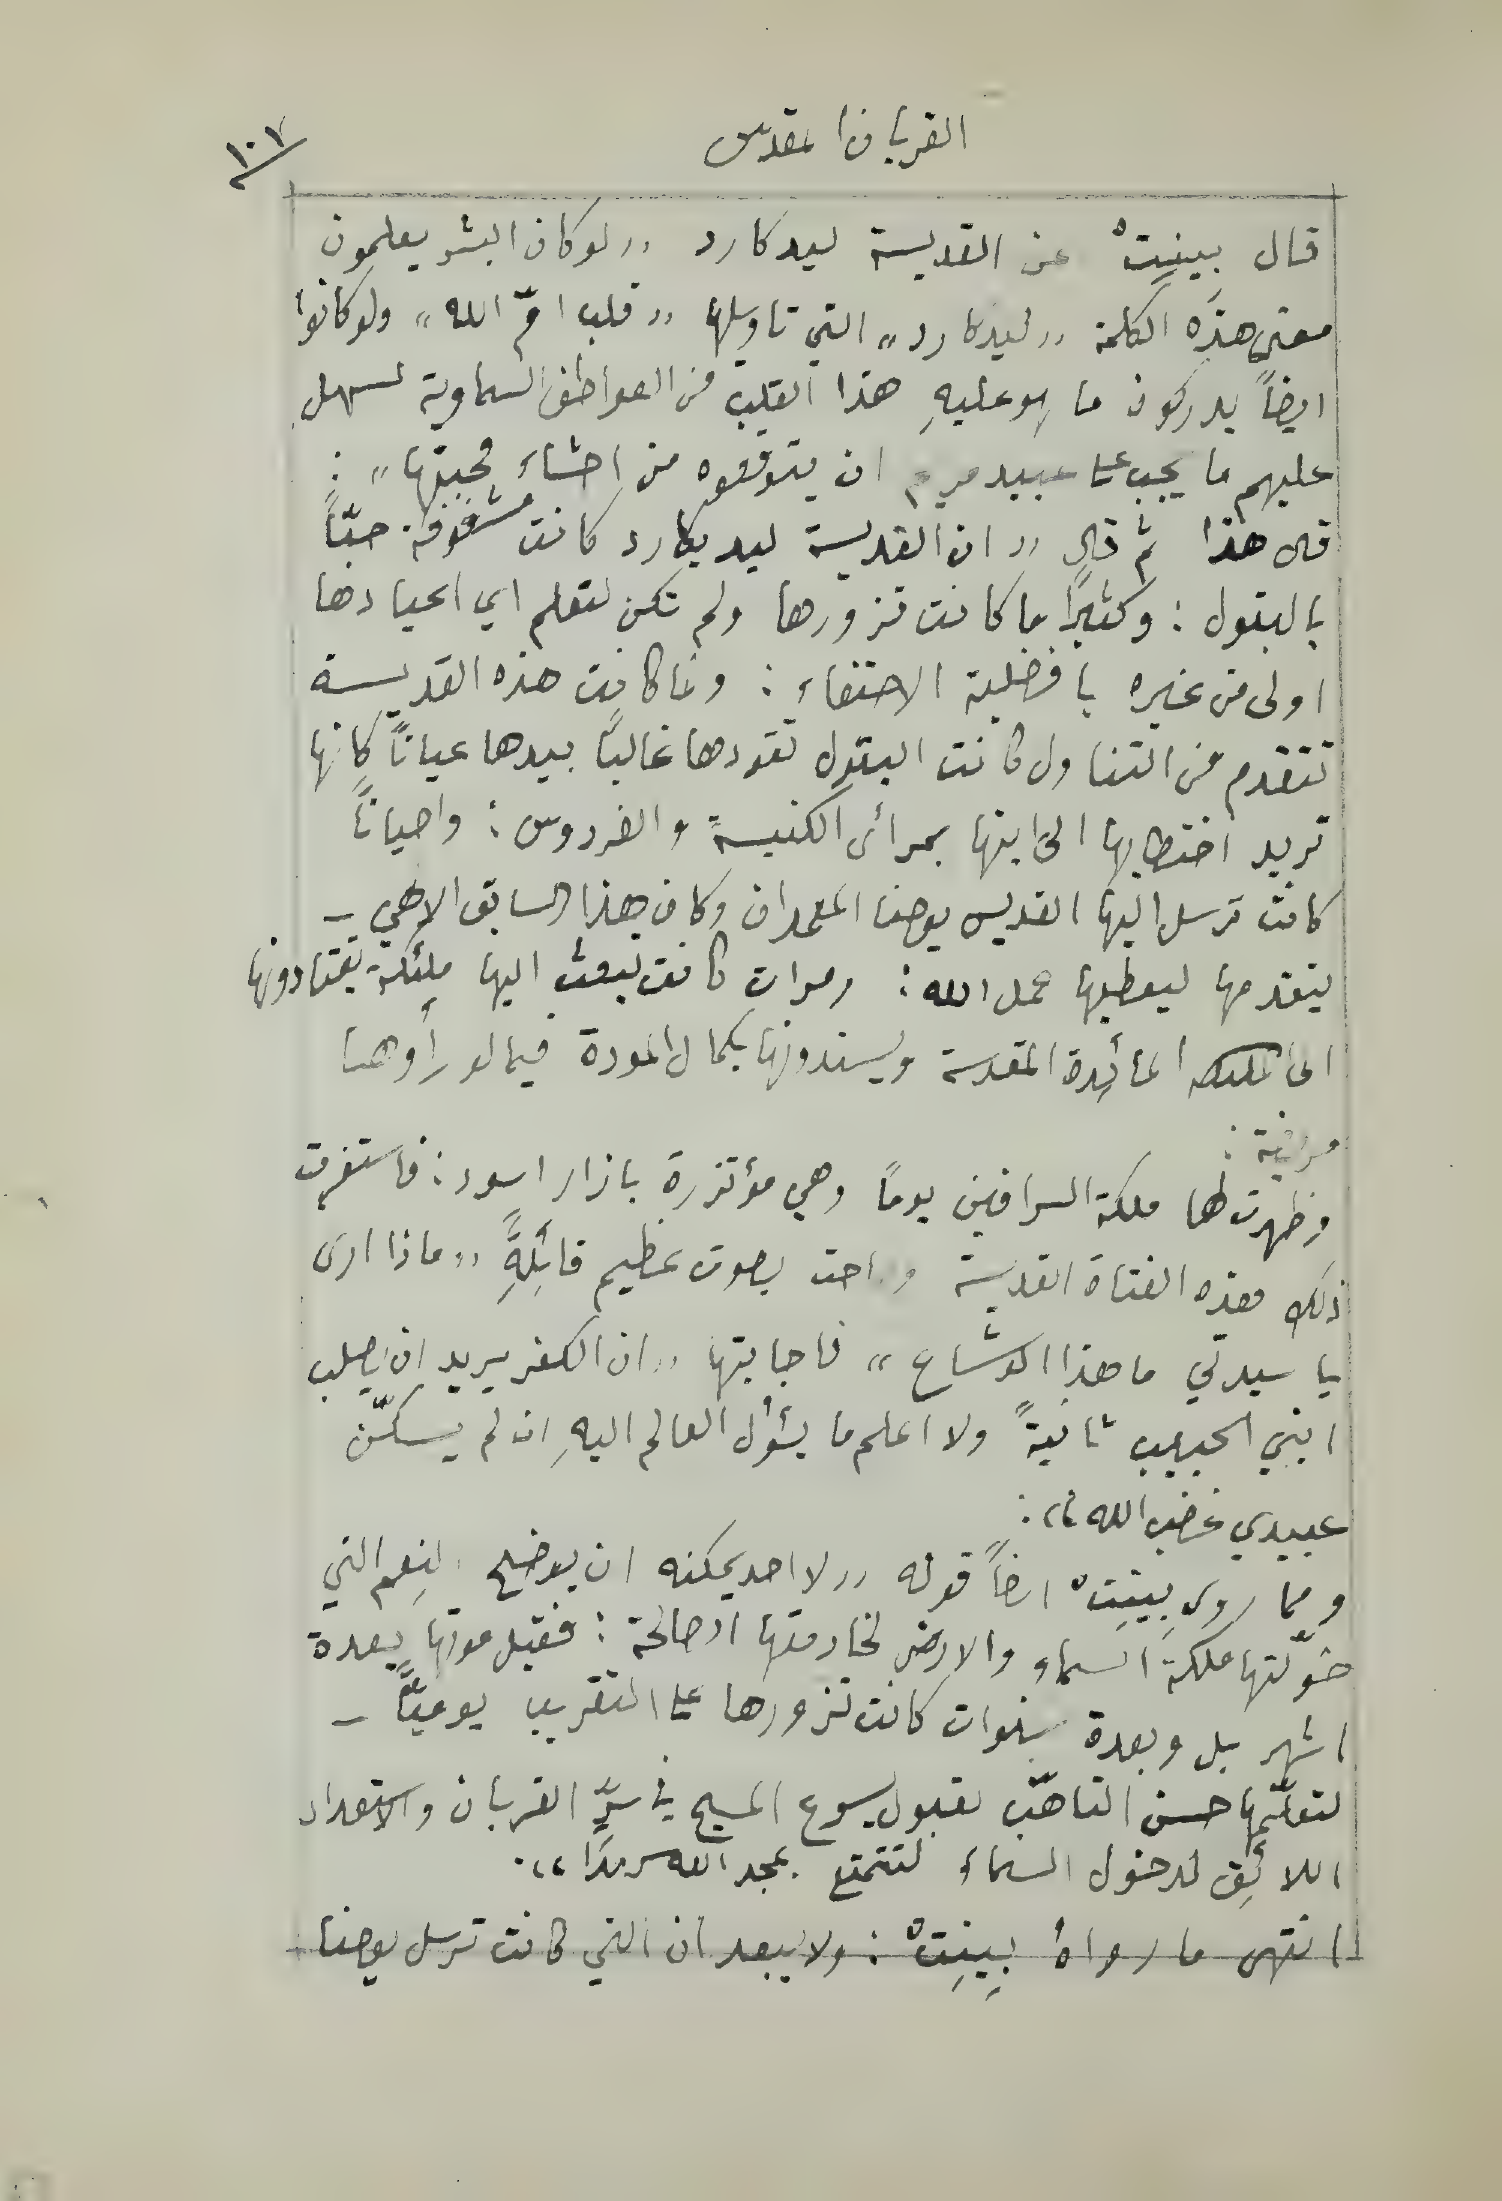 القربان المقدس
١٠٧
قال بِينِتْ عن القديسة ليدكارد „لو كان البشر يعلمون
معنى هذه الكلمة „ليدكارد„ التي تاويلها „قلب امّ الله„ ولو كانوا
ايضاً يدركون ما هو عليهِ هذا القلب من العواطف السماوية لسهل
عليهم ما يجب على عبيد مريم ان يتوقعوه من احشاء محبتها„ :
قال هذا ثم قال „ان القديسة ليديكارد كانت مشغوفة حبّاً
بالبتول : وكثيراً ما كانت تزورها ولم تكن لتعلم اي اعيادها
اولى من غيره بافضلية الاحتفاء : ولما كانت هذه القديسة
تتقدم من التناول كانت البتول تقودها غالباً بيدها عياناً كانها
تريد اختطابها الى ابنها بمرأى الكنيسة والفردوس : واحياناً
كانت ترسل اليها القديس يوحنا المعمدان وكان هذا السابق الالهي –
يتقدمها ليعطيها حمل الله : ومرات كانت تبعث اليها ملئكة يقتادونها
الى المائدة المقدسة ويسندونها بكمال المودة فيما لو رأوها
مريضة :
وظهرت لها ملكة السرافين يوماً وهي مؤتزرة بازار اسود : فاستغربت
ذلك هذه الفتاة القديسة وصاحت بصوت عظيم قائلةً „ماذا ارى
يا سيدتي ما هذا الوشاح„ فاجابتها „ان الكفر يريد ان يصلب
ابني الحبيب ثانيةً ولا اعلم ما يئول العالم اليهِ ان لم يسكّن
عبيدي غضب الله„ :
ومما روى بِينِتْ ايضاً قوله „لا احد يمكنه ان يوضح النِعم التي
خوّلتها ملكة السماء والارض لخادمتها الصالحة : فقبل موتها بعدة
اشهر بل وبعدة سنوات كانت تزورها على التقريب يوميّاً –
لتعلّمها حسن التاهّب لقبول يسوع المسيح في سرّ القربان والاستعداد
اللائق لدخول السماء لتتمتع بمجد الله سرمدًا„ .
انتهى ما رواهُ بِينِتْ : ولا يبعد ان التي كانت ترسل يوحنا